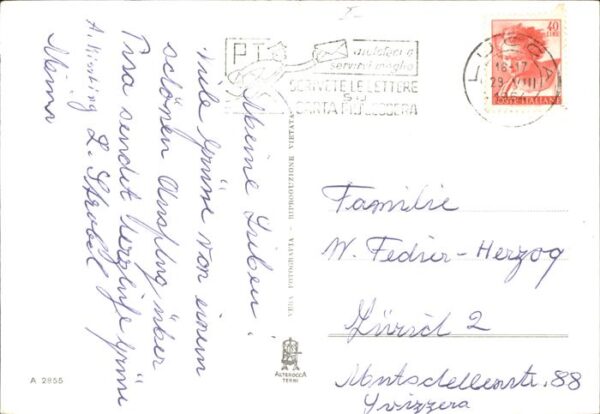 Meine Lieben!
Viele Grüsse von einem
schönen Ausflug über
Pisa sendet herzliche Grüsse
L. Strobel
Mima
PT
aiutateci a
servirvi meglio
SCRIVETE LE LETTERE
SU
CARTA PIÙ LEGGERA
40
LIRE
POSTE ITALIANE
LUCCA
16-17
29 VIII
196
VERA FOTOGRAFIA - RIPRODUZIONE VIETATA
ALTEROCCA
TERNI
A 2855
Familie
W. Fedier-Herzog
Zürich 2
88
Svizzera